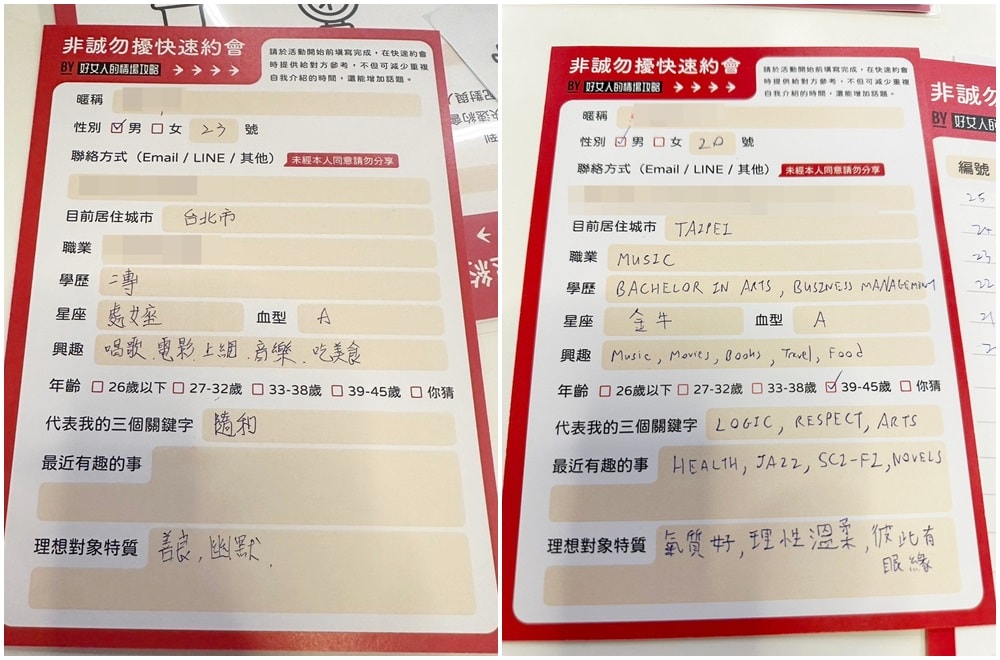 非誠勿擾快速約會
BY 好女人的情場攻略
請於活動開始前填寫完成，在快速約會
時提供給對方參考，不但可減少重複
自我介紹的時間，還能增加話題。
暱稱
性別 ☑男 □女 23 號
聯絡方式（Email / LINE / 其他） 未經本人同意請勿分享
目前居住城市 台北市
職業
學歷 二專
星座 處女座 血型 A
興趣 唱歌、電影、上網、音樂、吃美食
年齡 □26歲以下 □27-32歲 □33-38歲 □39-45歲 □你猜
代表我的三個關鍵字 隨和
最近有趣的事
理想對象特質 善良，幽默.
非誠勿擾快速約會
BY 好女人的情場攻略
請於活動開始前填寫完成，在快速約會
時提供給對方參考，不但可減少重複
自我介紹的時間，還能增加話題。
暱稱
性別 ☑男 □女 20 號
聯絡方式（Email / LINE / 其他） 未經本人同意請勿分享
目前居住城市 TAIPEI
職業 MUSIC
學歷 BACHELOR IN ARTS, BUSINESS MANAGEMENT
星座 金牛 血型 A
興趣 Music, Movies, Books, Travel, Food
年齡 □26歲以下 □27-32歲 □33-38歲 ☑39-45歲 □你猜
代表我的三個關鍵字 LOGIC, RESPECT, ARTS
最近有趣的事 HEALTH, JAZZ, SCI-FI, NOVELS
理想對象特質 氣質好，理性溫柔，彼此有
眼緣
非誠勿
BY 好女人
編號
25
24
23
22
21